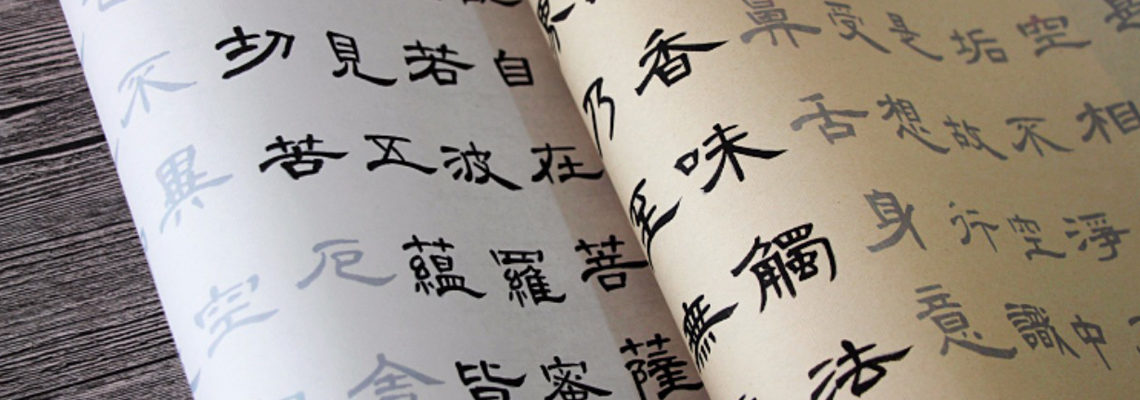 空相
垢不淨
是故空中
受想行識
鼻舌身意
香味觸法
乃至無
自在菩薩
若波羅蜜
見五蘊皆
切苦厄舍
不異空